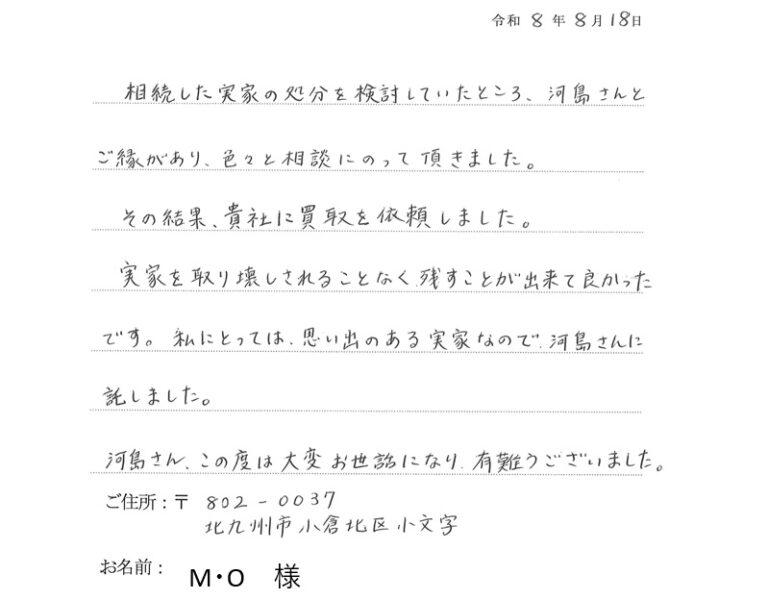 令和 8 年 8 月 18 日
相続した実家の処分を検討していたところ、河島さんと
ご縁があり、色々と相談にのって頂きました。
その結果、貴社に買取を依頼しました。
実家を取り壊しされることなく、残すことが出来て良かった
です。私にとっては、思い出のある実家なので、河島さんに
託しました。
河島さん、この度は大変お世話になり、有難うございました。
ご住所:〒 802-0037
北九州市小倉北区小文字
お名前: M・O 様